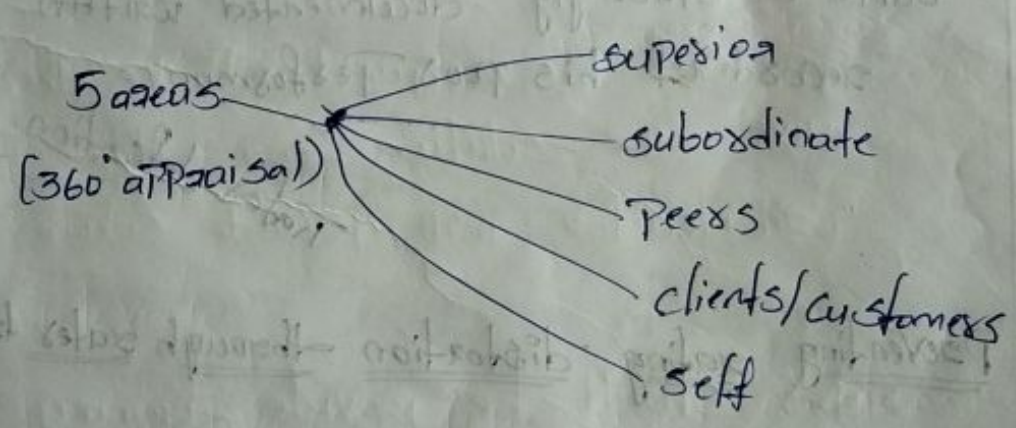 5 areas
(360° appraisal)
superior
subordinate
Peers
clients/customers
self